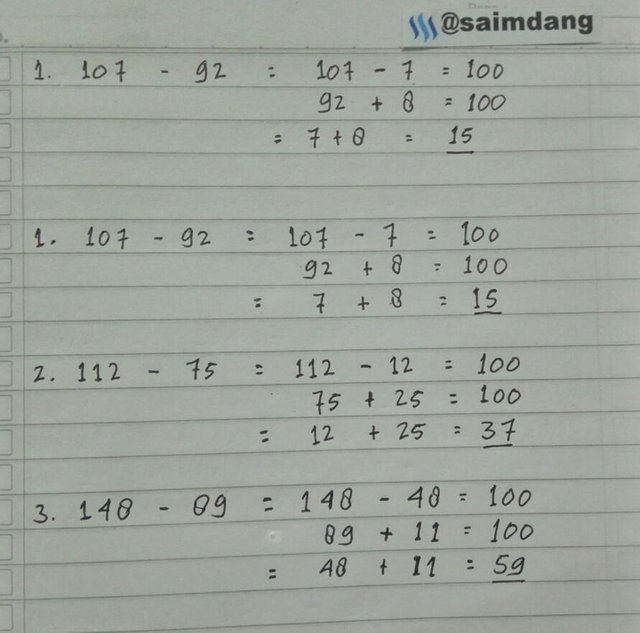 @saimdang
1. 107 - 92 = 107 - 7 = 100
92 + 8 = 100
= 7 + 8 = 15
1. 107 - 92 = 107 - 7 = 100
92 + 8 = 100
= 7 + 8 = 15
2. 112 - 75 = 112 - 12 = 100
75 + 25 = 100
= 12 + 25 = 37
3. 148 - 89 = 148 - 48 = 100
89 + 11 = 100
= 48 + 11 = 59